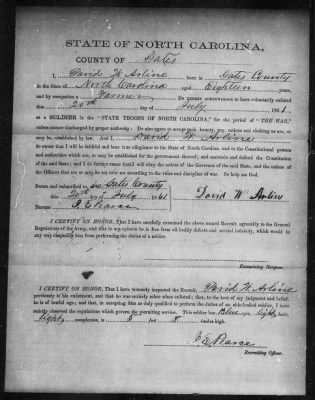 STATE OF NORTH CAROLINA,
COUNTY OF Gates
I, David W Arline born in Gates County
in the State of North Carolina aged Eighteen years,
and by occupation a Farmer Do hereby acknowledge to have voluntarily enlisted
this 20th day of July 1861
as a SOLDIER in the "STATE TROOPS OF NORTH CAROLINA," for the period of "THE WAR,"
unless sooner discharged by proper authority: Do also agree to accept such bounty, pay, rations and clothing as are, or
may be, established by law. And I, David W Arline do solemnly
swear that I will be faithful and bear true allegiance to the State of North Carolina and to the Constitutional powers
and authorities which are, or may be established for the government thereof; and maintain and defend the Constitution
of the said State; and I do further swear that I will obey the orders of the Governor of the said State, and the orders of
the Officers that are or may be set over me according to the rules and discipline of war. So help me God.
Sworn and subscribed in Gates County
this 20th July 1861
Before
David W Arline
I CERTIFY ON HONOR, That I have carefully examined the above named Recruit, agreeably to the General
Regulations of the Army, and that in my opinion he is free from all bodily defects and mental infirmity, which would in
any way disqualify him from performing the duties of a soldier.
Examining Surgeon.
I CERTIFY ON HONOR, That I have minutely inspected the Recruit, David W. Arline
previously to his enlistment, and that he was entirely sober when enlisted; that, to the best of my judgment and belief,
he is of lawful age; and that, in accepting him as duly qualified to perform the duties of an able-bodied soldier, I have
strictly observed the regulations which govern the recruiting service. This soldier has Blue eyes, light hair,
light complexion is 5 feet 8 inches high.
Recruiting Officer.